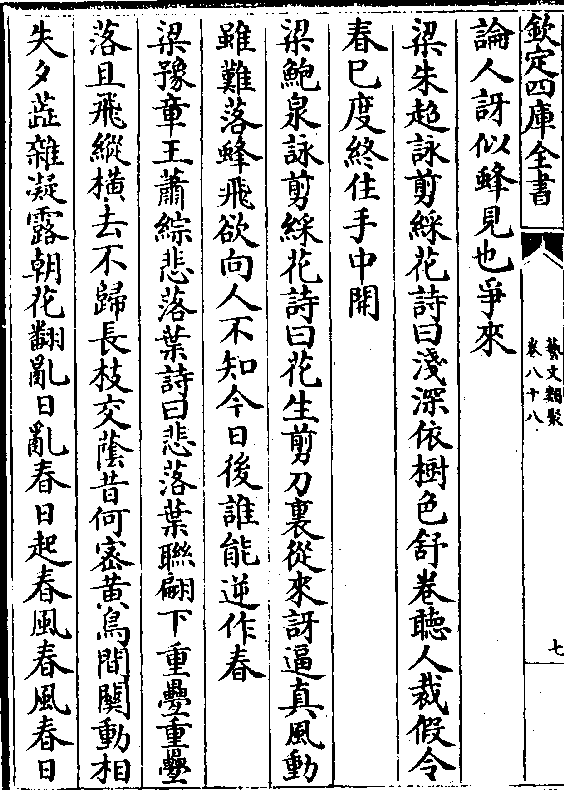 欽定四庫全書
藝文類聚
卷八十八
七
論人訝似蜂見也爭來
梁朱超詠剪綵花詩曰淺深依樹色舒卷聽人裁假令
春已度終住手中開
梁鮑泉詠剪綵花詩曰花生剪刀裏從來訝逼真風動
雖難落蜂飛欲向人不知今日後誰能逆作春
梁豫章王蕭綜悲落葉詩曰悲落葉聯翩下重疊重疊
落且飛縱橫去不歸長枝交蔭昔何密黄鳥間關動相
失夕蘂雜凝露朝花翻亂日亂春日起春風春風春日